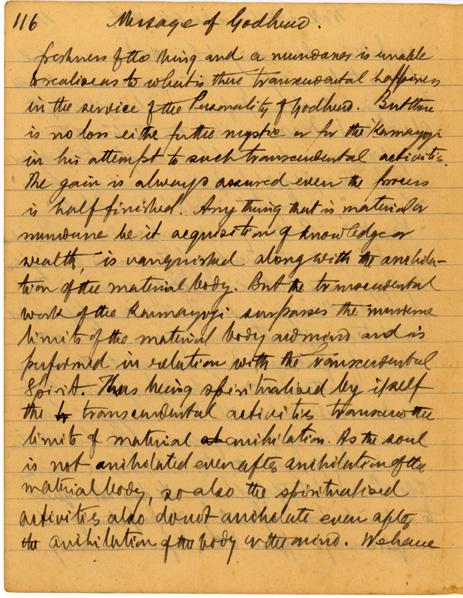 116 Message of Godhead.
freshness of the thing and a mundaner is unable
to realise as to what is there transcendental happiness
in the service of the Personality of Godhead. But there
is no loss either for the mystic or for the Karmayogi
in his attempt to such transcendental activities.
The gain is always assured even the process
is half finished. Any thing that is material or
mundane be it acquisition of knowledge or
wealth, is vanquished along with the anihila-
tion of the material body. But the transcendental
work of the Karmayogi surpasses the
limits of the material body and mind and is
performed in relation with the transcendental
Spirit. Thus being spiritualised by itself
the transcendental activities transcend the
limits of material anihilation. As the soul
is not anihilated even after anihilation of the
material body, so also the spiritualised
activities also do not anihilate even after
the anihilation of the body or the mind. We have